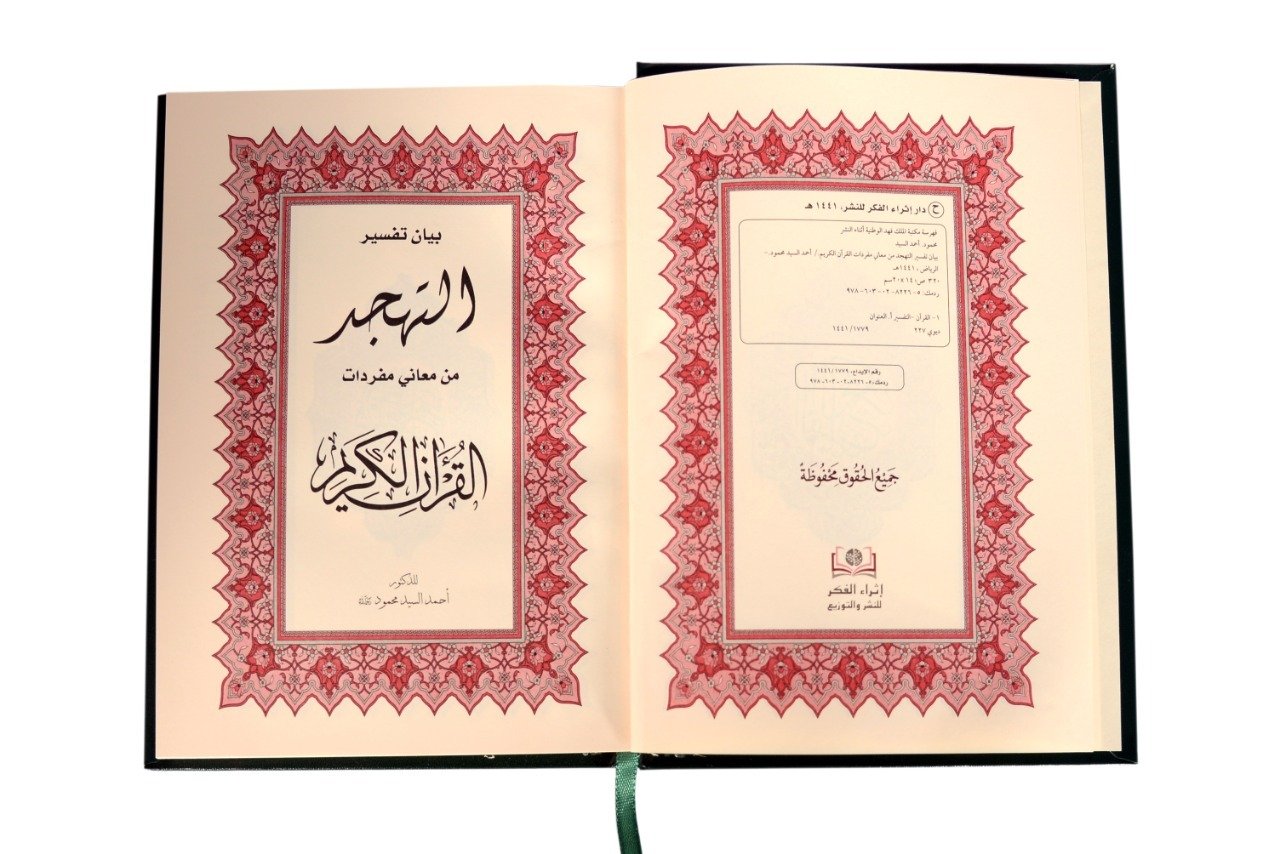 ح دار إثراء الفكر للنشر، ١٤٤١ هـ
فهرسة مكتبة الملك فهد الوطنية أثناء النشر
محمود، أحمد السيد
بيان تفسير التهجد من معاني مفردات القرآن الكريم / أحمد السيد محمود.-
الرياض، ١٤٤١هـ
٣٢٠ ص؛ ١٤×٢٠سم
ردمك: ٥-٠٢-٨٢٢٦-٦٠٣-٩٧٨
١- القرآن -التفسير أ. العنوان
ديوي ٢٢٧ ١٤٤١/١٧٧٩
رقم الإيداع: ١٤٤١/١٧٧٩
ردمك: ٥-٠٢-٨٢٢٦-٦٠٣-٩٧٨
جَمِيْعُ الحُقُوقِ مَحْفُوظَةٌ
إثراء الفكر
للنشر والتوزيع
بيان تفسير
التهجد
من معاني مفردات
القُرْآنِ الكَرِيمِ
للدكتور
أحمد السيد محمود